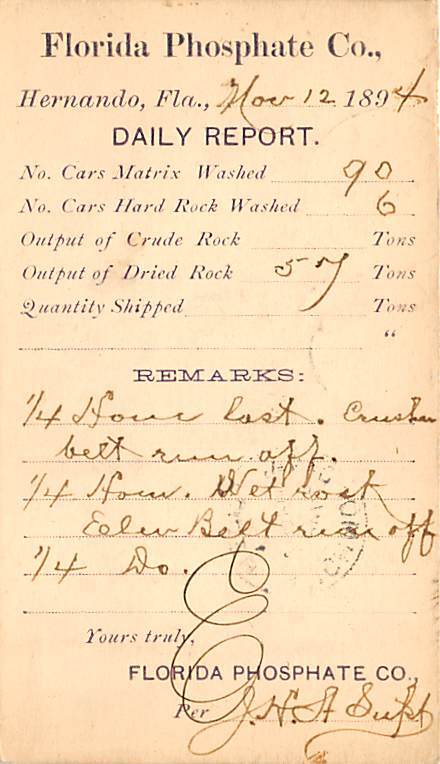 Florida Phosphate Co.,
Hernando, Fla., Nov 12 1894
DAILY REPORT.
No. Cars Matrix Washed 90
No. Cars Hard Rock Washed 6
Output of Crude Rock Tons
Output of Dried Rock 57 Tons
Quantity Shipped Tons
"
REMARKS:
1/4 Hour lost. Crusher
belt run off.
1/4 Hour. Wet rock
Elev Belt run off
1/4 Do.
Yours truly,
FLORIDA PHOSPHATE CO.,
Per J. H. A Supt